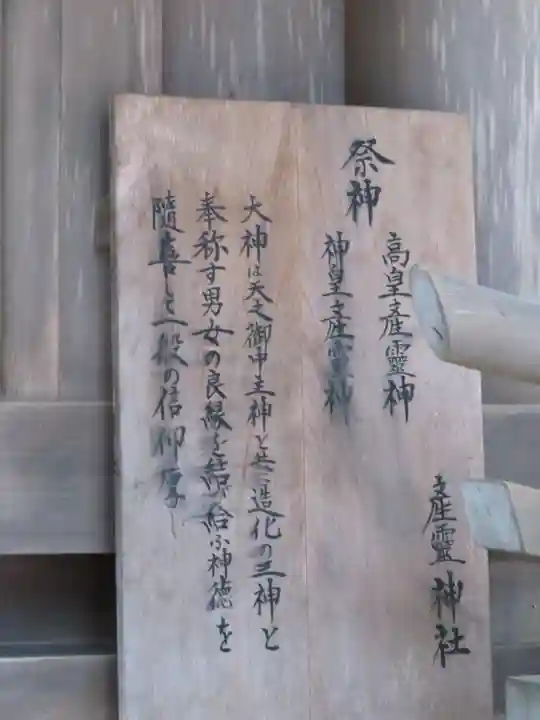 産靈神社
祭神
高皇産靈神
神皇産靈神
大神は天之御中主神と共に造化の三神と
奉称す男女の良縁を結び給ふ神徳を
随喜し一般の信仰厚し